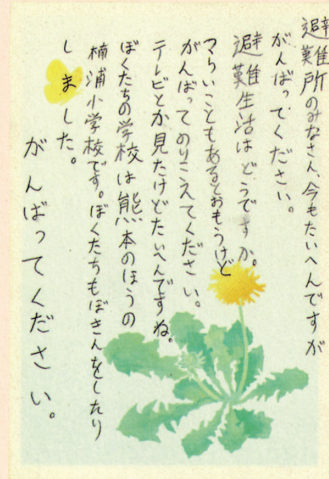 避難所のみなさん、今もたいへんですが
がんばってください。
避難生活はどうですか。
つらいこともあるとおもうけど
がんばってのりこえてください。
テレビとか見たけどたいへんですね。
ぼくたちの学校は熊本のほうの
楠浦小学校です。ぼくたちもぼきんをしたり
しました。
がんばってください。